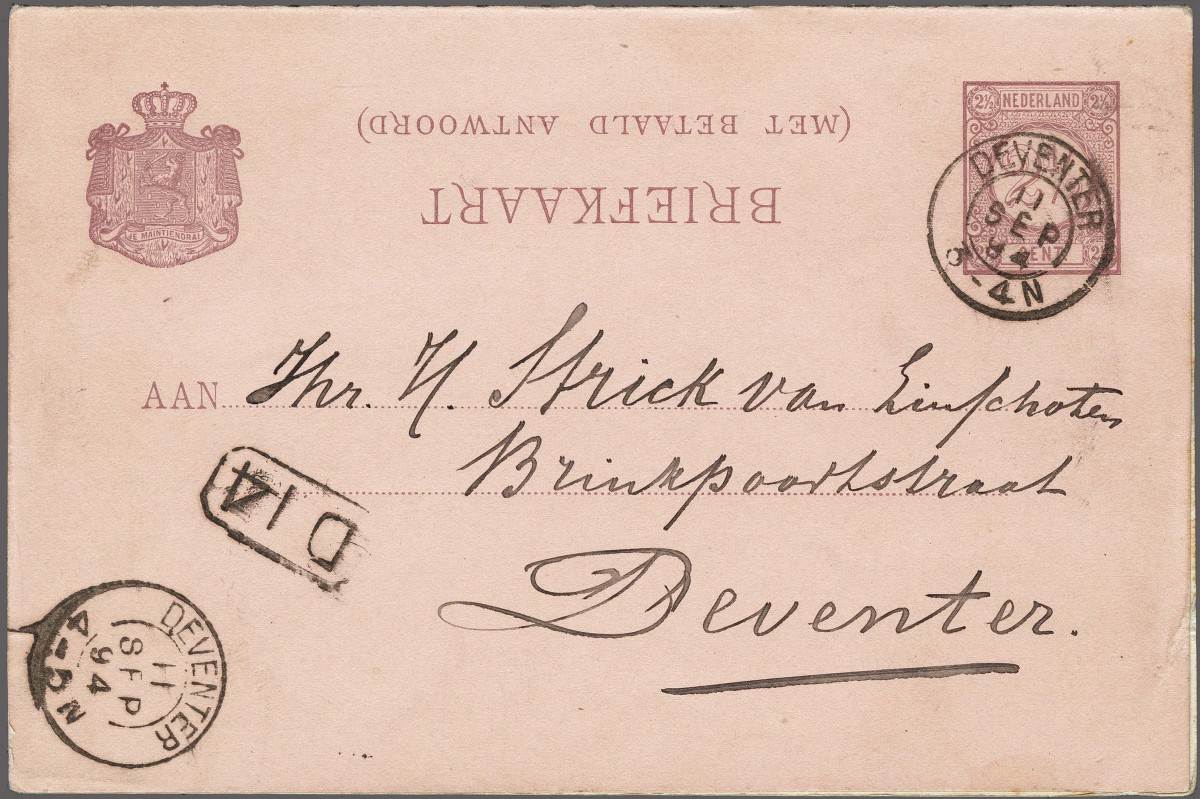 (MET BETAALD ANTWOORD)
BRIEFKAART
JE MAINTIENDRAI
2½ NEDERLAND 2½
CENT
DEVENTER
11
SEP
94
3-4N
AAN Jhr. H. Strick van Linschoten
Brinkpoortstraat
Deventer.
D 14
DEVENTER
11
SEP
94
4-5N